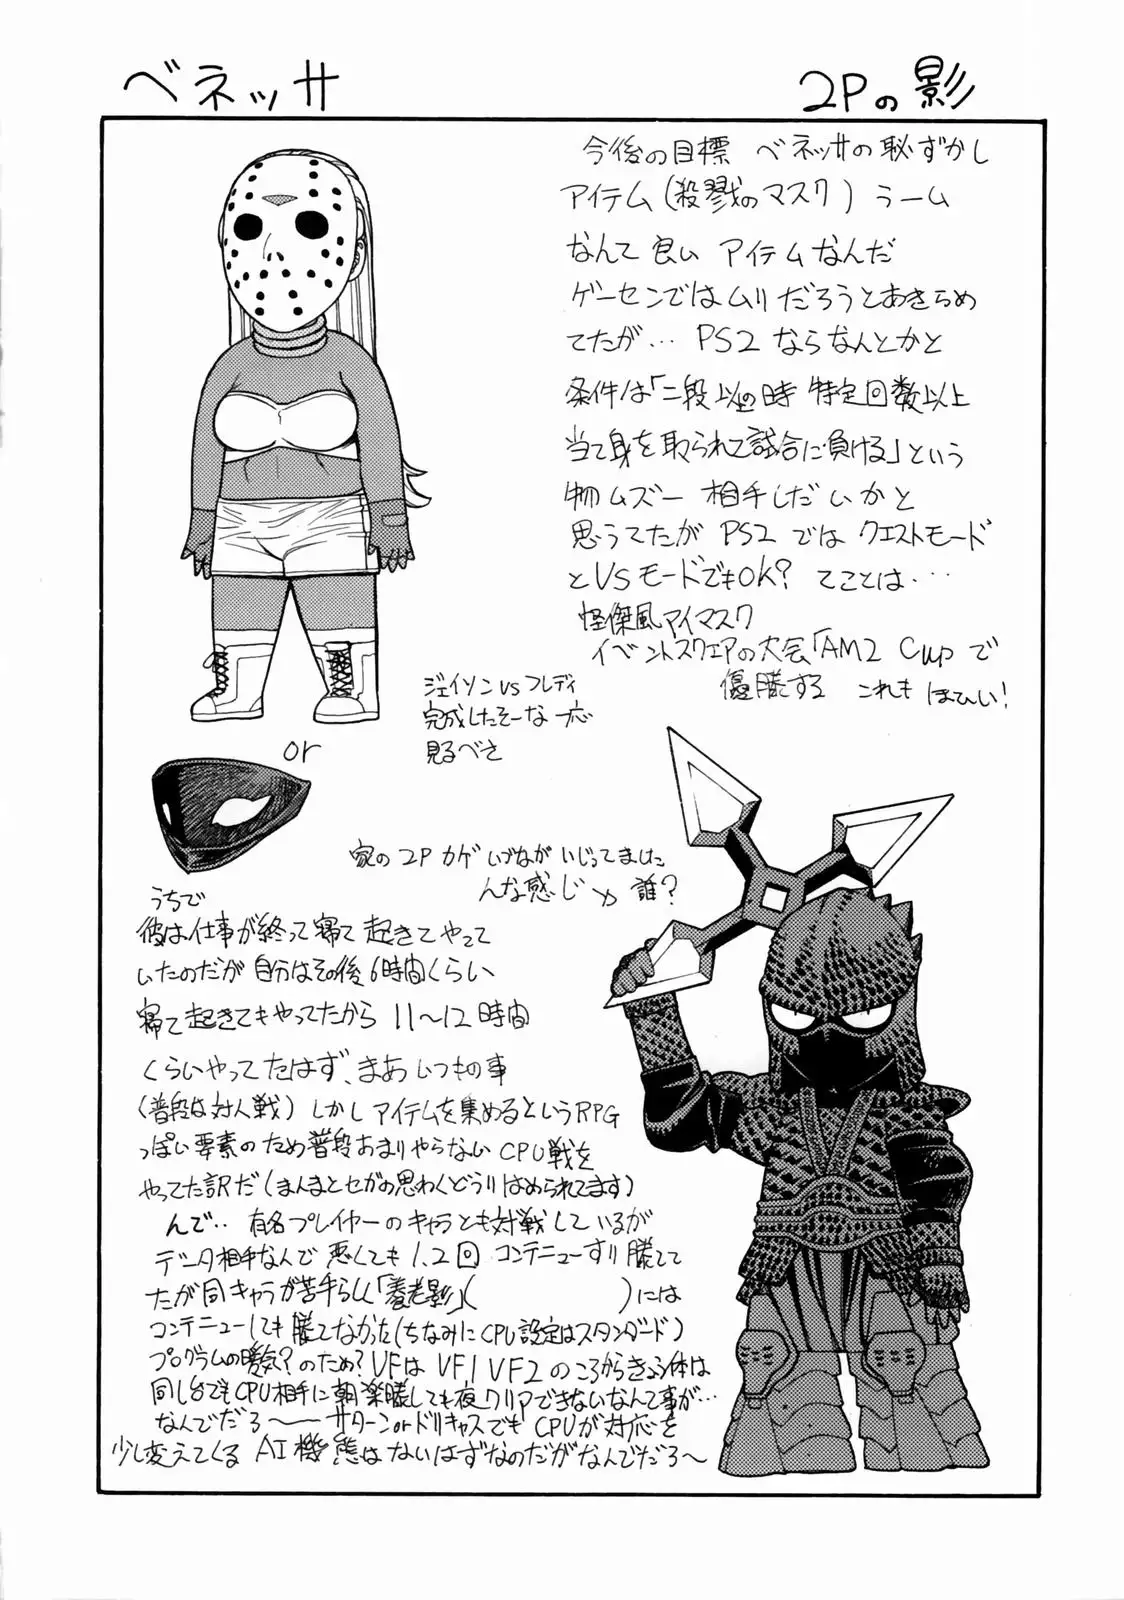 ベネッサ
2Pの影
今後の目標 ベネッサの恥ずかし
アイテム(殺戮のマスク) うーム
なんて良い アイテムなんだ
ゲーセンではムリだろうとあきらめ
てたが… PS2 ならなんとかと
条件は「二段以上の時 特定回数以上
当て身を取られて試合に負ける」という
物 ムズー 相手しだいかと
思うてたが PS2 では クエストモード
とVSモードでもOK? てことは…
怪傑風アイマスク
イベントスクエアの大会「AM2 Cup で
優勝する これも ほひい!
ジェイソン VS フレディ
完成したそーな 一応
見るべさ
or
家の 2P カゲ いづなが いじってました
んな感じ 誰?
うちで
彼は仕事が終って寝て 起きてやって
いたのだが 自分はその後 6時間くらい
寝て起きてもやってたから 11〜12時間
くらいやってたはず、まあ いつもの事
(普段は対人戦) しかし アイテムを集めるというRPG
っぽい要素のため普段あまりやらない CPU戦を
やってた訳だ (まんまとセガの思わくどうりはめられてます)
んで‥ 有名プレイヤーのキャラとも対戦しているが
データ相手なんで 悪くても 1、2回 コンテニューすり 勝てて
たが同キャラが苦手らしく「養老影」( )には
コンテニューしても 勝てなかった (ちなみにCPU設定はスタンダード)
プログラムの 気?のため? VFは VF1 VF2 のころからきょう体は
同じ台でもCPU相手に朝 楽勝しても夜 クリアできないなんて事が…
なんでだろ〜 サターン or ドリキャスでも CPUが 対応を
少し変えてくる AI機態は ないはずなのだが なんでだろ〜